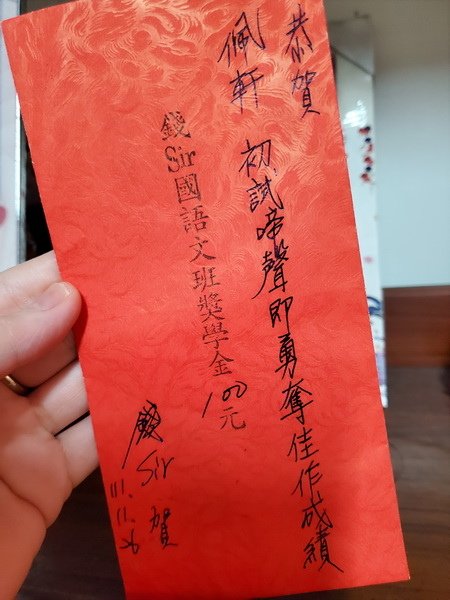 恭賀
佩軒
初試啼聲即勇奪佳作成績
錢Sir國語文班獎學金100元
錢Sir賀
111.11.26